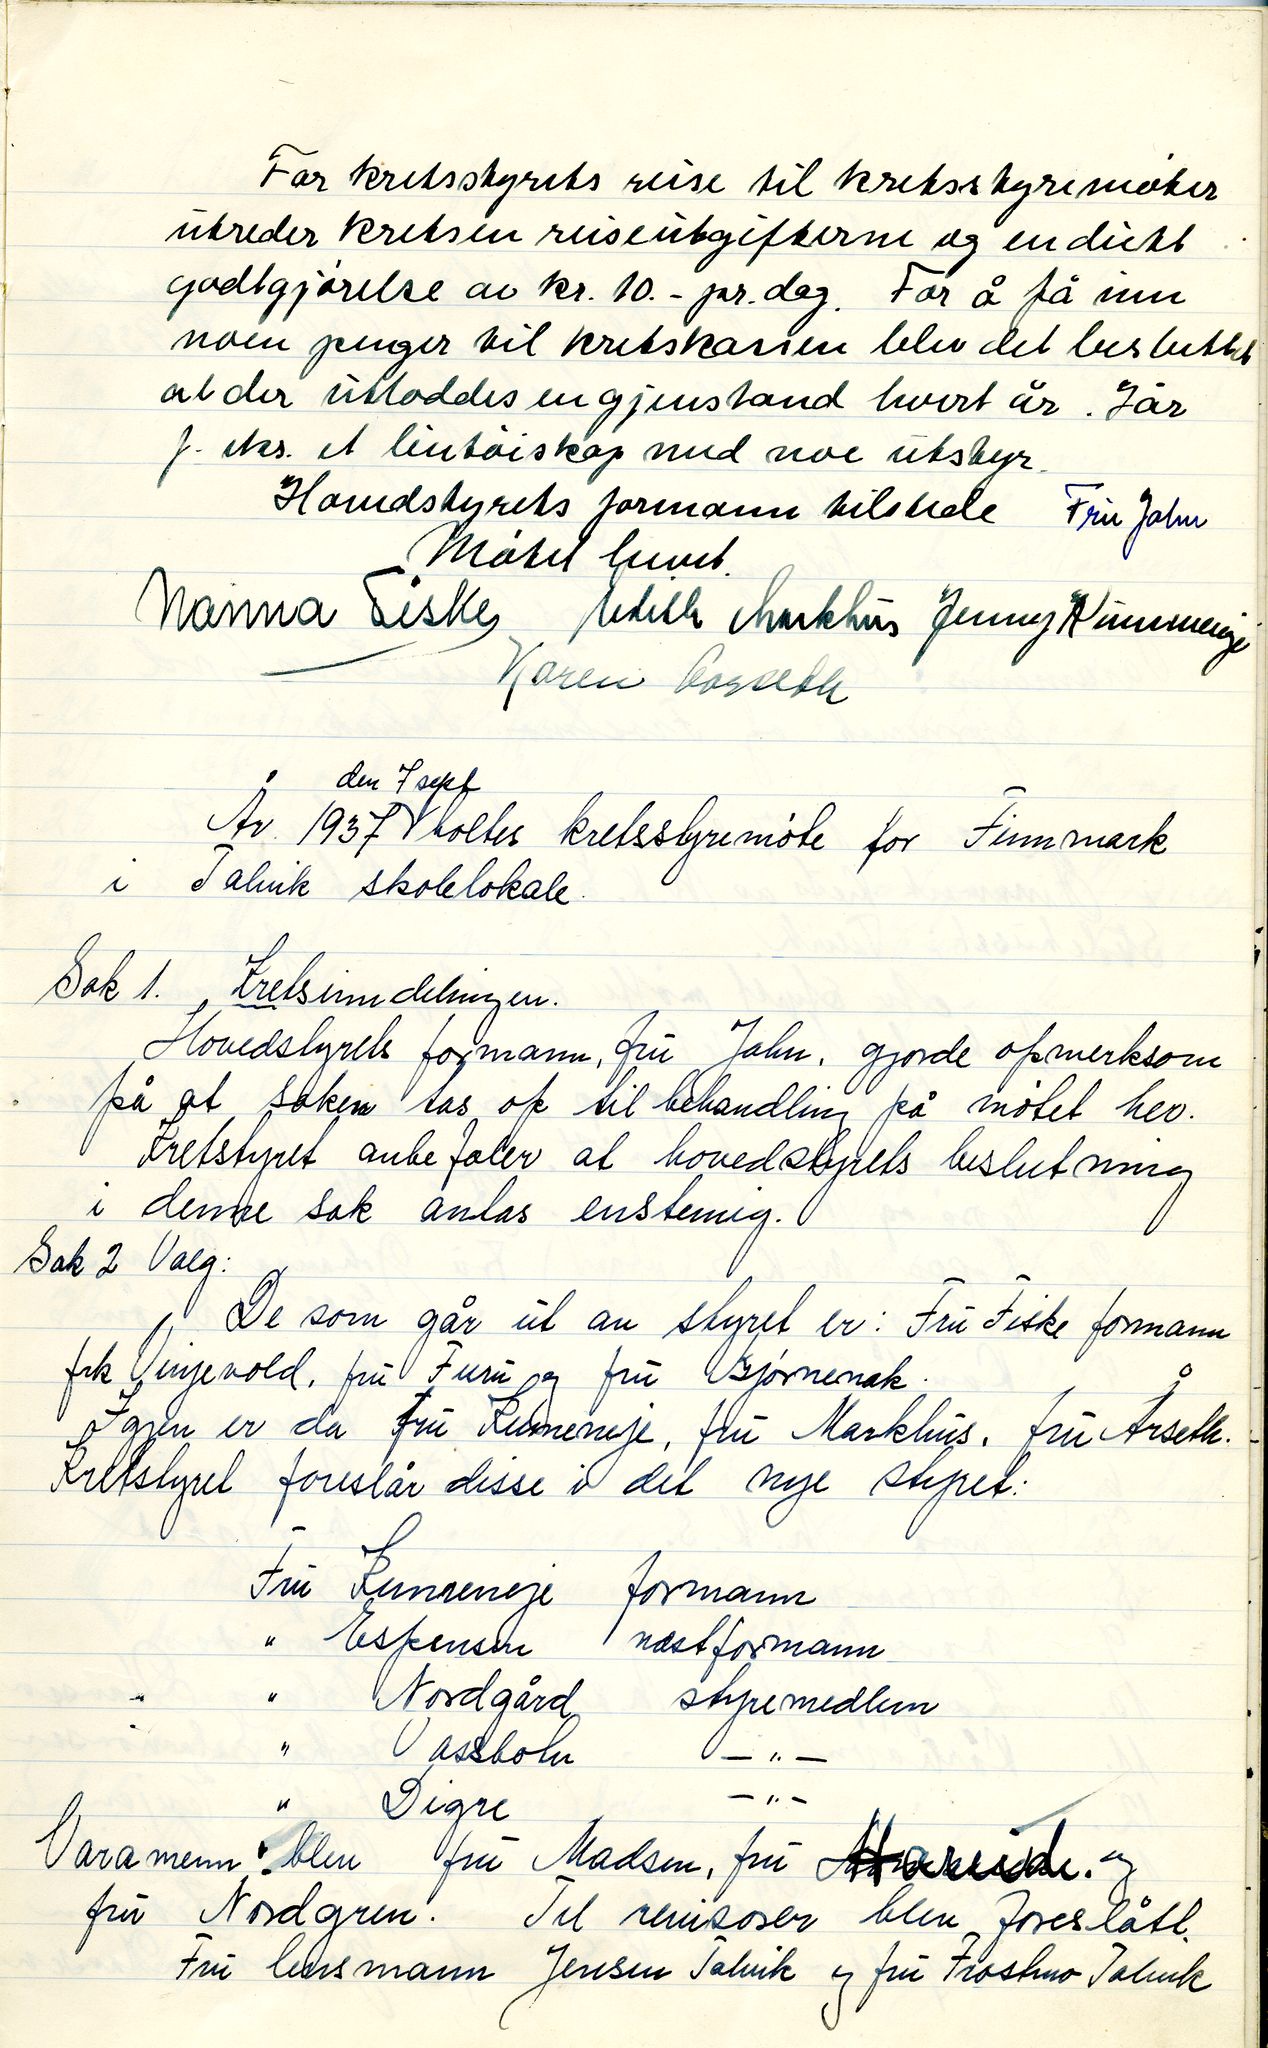 For kretsstyrets reise til kretsstyremøter
utreder kretsen reiseutgifterne og en diett
godtgjørelse av kr. 10.- pr. dag. For å få inn
noen penger til kretskassen blev det besluttet
at der utloddes en gjenstand hvert år. I år
f. eks. et lintøiskap med noe utstyr.
Hovedstyrets formann tilstede Fru Jahn
Møtet hevet.
Nanna Fiske Edith Markhus Jenny Kummeneje
Karen Aarseth
den 7 sept
År 1937 V holtes kretsstyremøte for Finnmark
i Talvik skolelokale.
Sak 1. Kretsinndelingen.
Hovedstyrets formann, fru Jahn, gjorde opmerksom
på at saken tas op til behandling på møtet her.
Kretstyret anbefaler at hovedstyrets beslutning
i denne sak antas enstemig.
Sak 2 Valg:
De som går ut av styret er: Fru Fiske formann
frk Vinjevold, fru Furu og fru Bjørnenak.
Igjen er da fru Kumeneje, fru Markhus, fru Årseth.
Kretstyret foreslår disse i det nye styret:
Fru Kummeneje formann
" Espensen næstformann
" Nordgård styremedlem
" Vassbotn - " -
" Digre - " -
Varamenn blev fru Madsen, fru Hareide. og
fru Nordgren. Til revisorer blev foreslått.
Fru lensmann Jensen Talvik og fru Frostmo Talvik